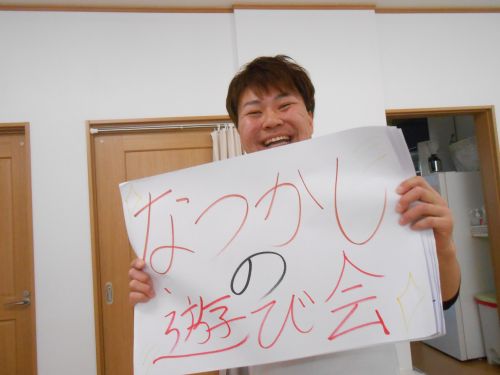 なつかし
の
遊び会